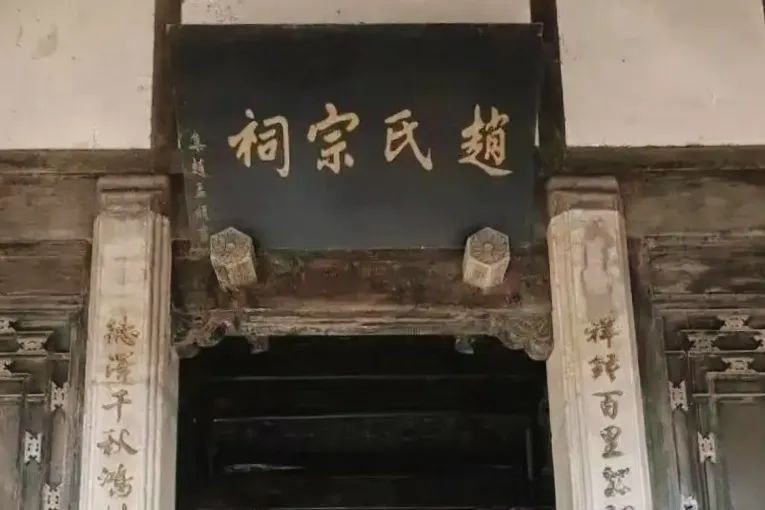 趙氏宗祠
集趙孟頫
祥鍾百里
德澤千秋鴻